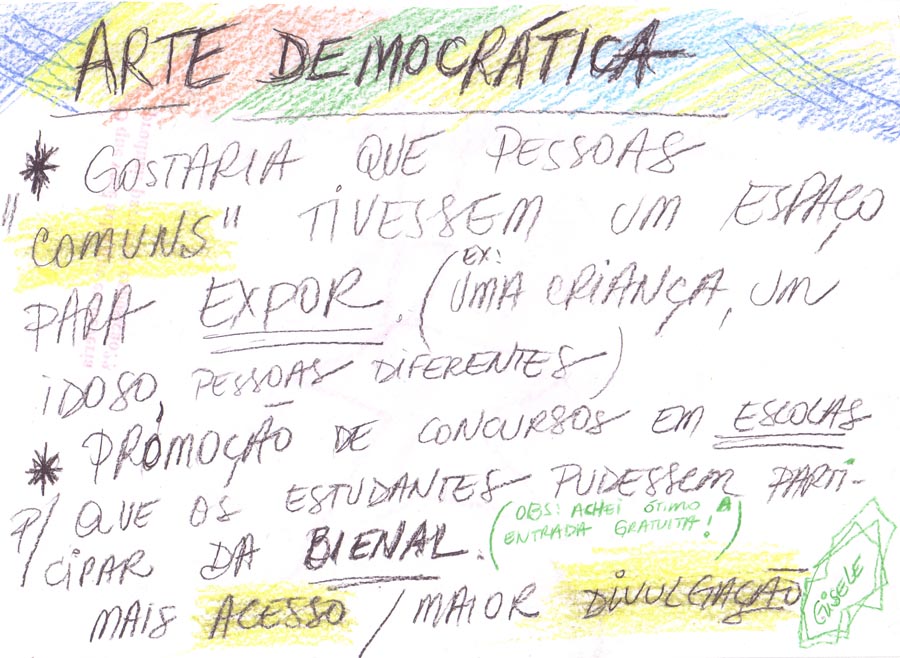 ARTE DEMOCRÁTICA
* GOSTARIA QUE PESSOAS
"COMUNS" TIVESSEM UM ESPAÇO
PARA EXPOR. (EX: UMA CRIANÇA, UM
IDOSO, PESSOAS DIFERENTES)
* PROMOÇÃO DE CONCURSOS EM ESCOLAS
P/ QUE OS ESTUDANTES PUDESSEM PARTI-
CIPAR DA BIENAL. (OBS: ACHEI ÓTIMO A
ENTRADA GRATUITA!)
MAIS ACESSO / MAIOR DIVULGAÇÃO
GISELE